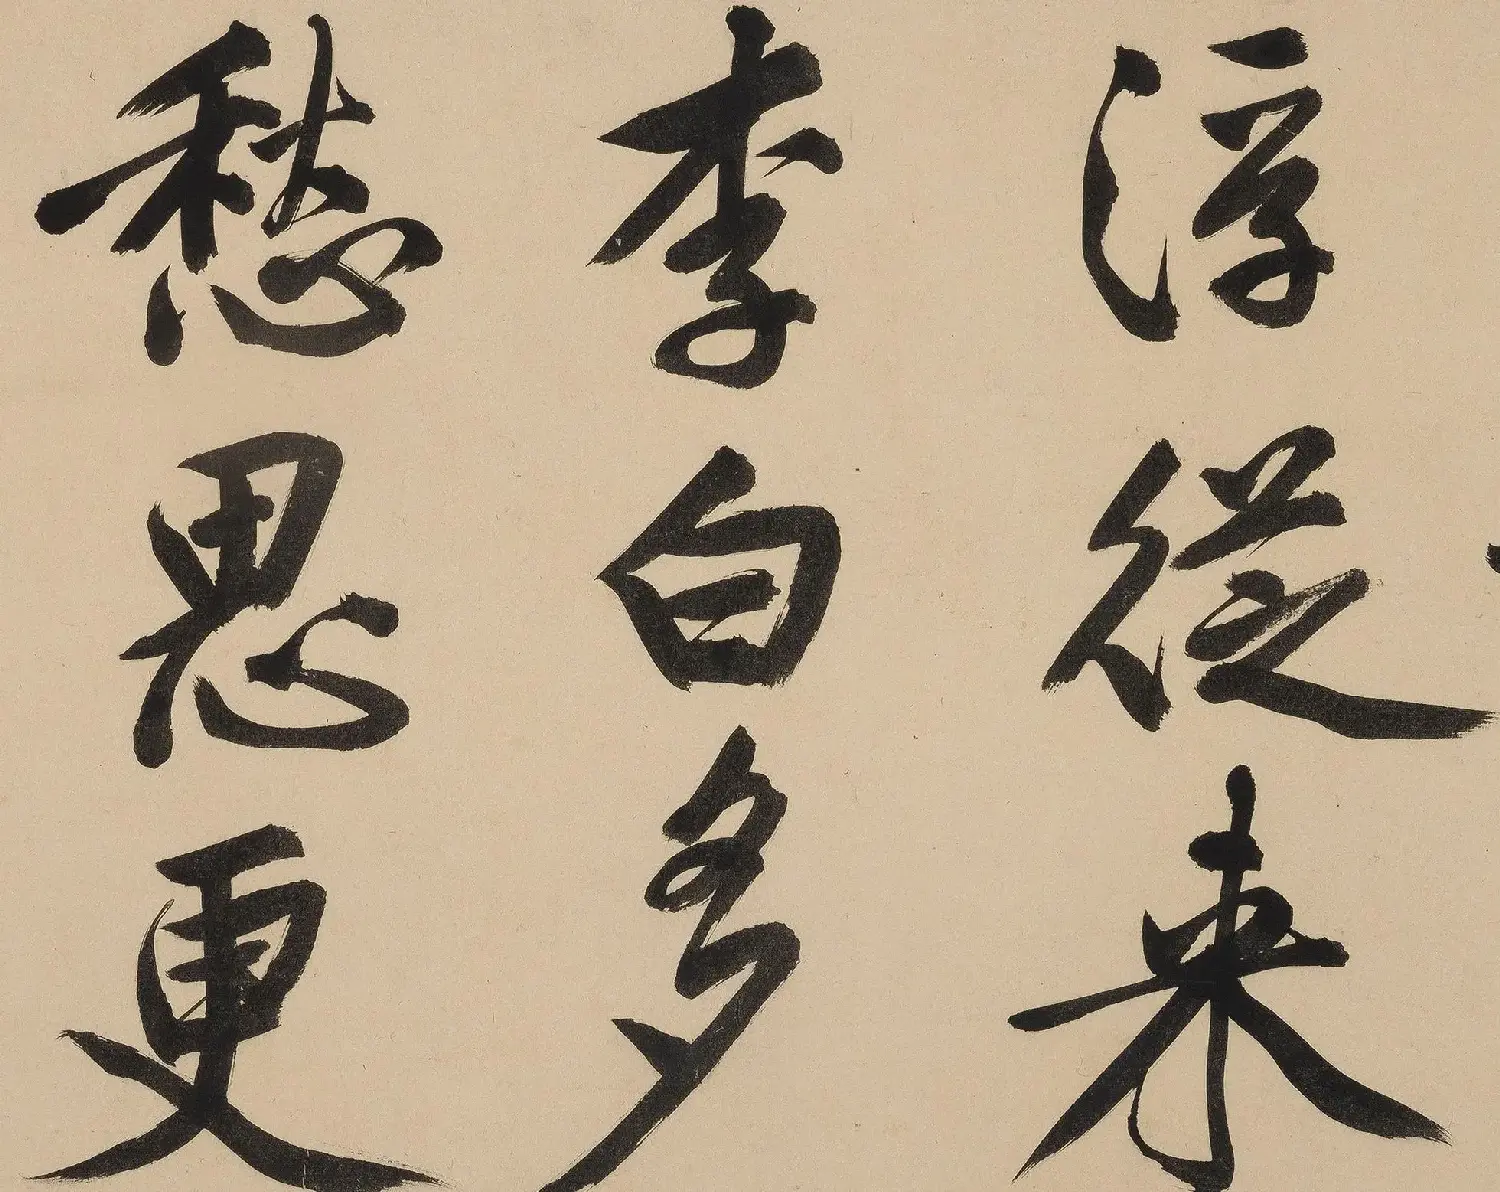 浮從来
李白多
愁思更